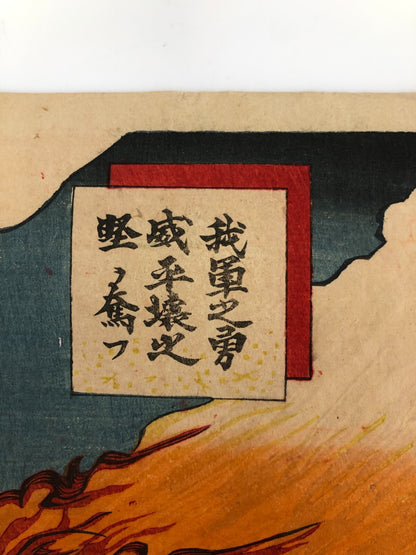 我軍之勇
威平壌之
堅ヲ奪フ